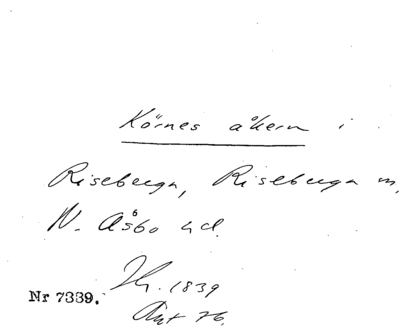 Körnes åkern i
Riseberga, Riseberga sn,
N. Åsbo hd.
Nr 7339. Th. 1839
Ant 76.